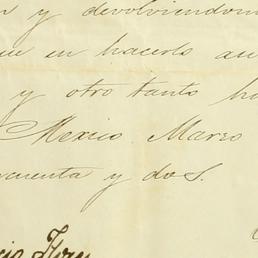 y devolviendom
en hacerlo au
y otro tanto ha
Mexico Marzo
cuenta y dos.
Flores